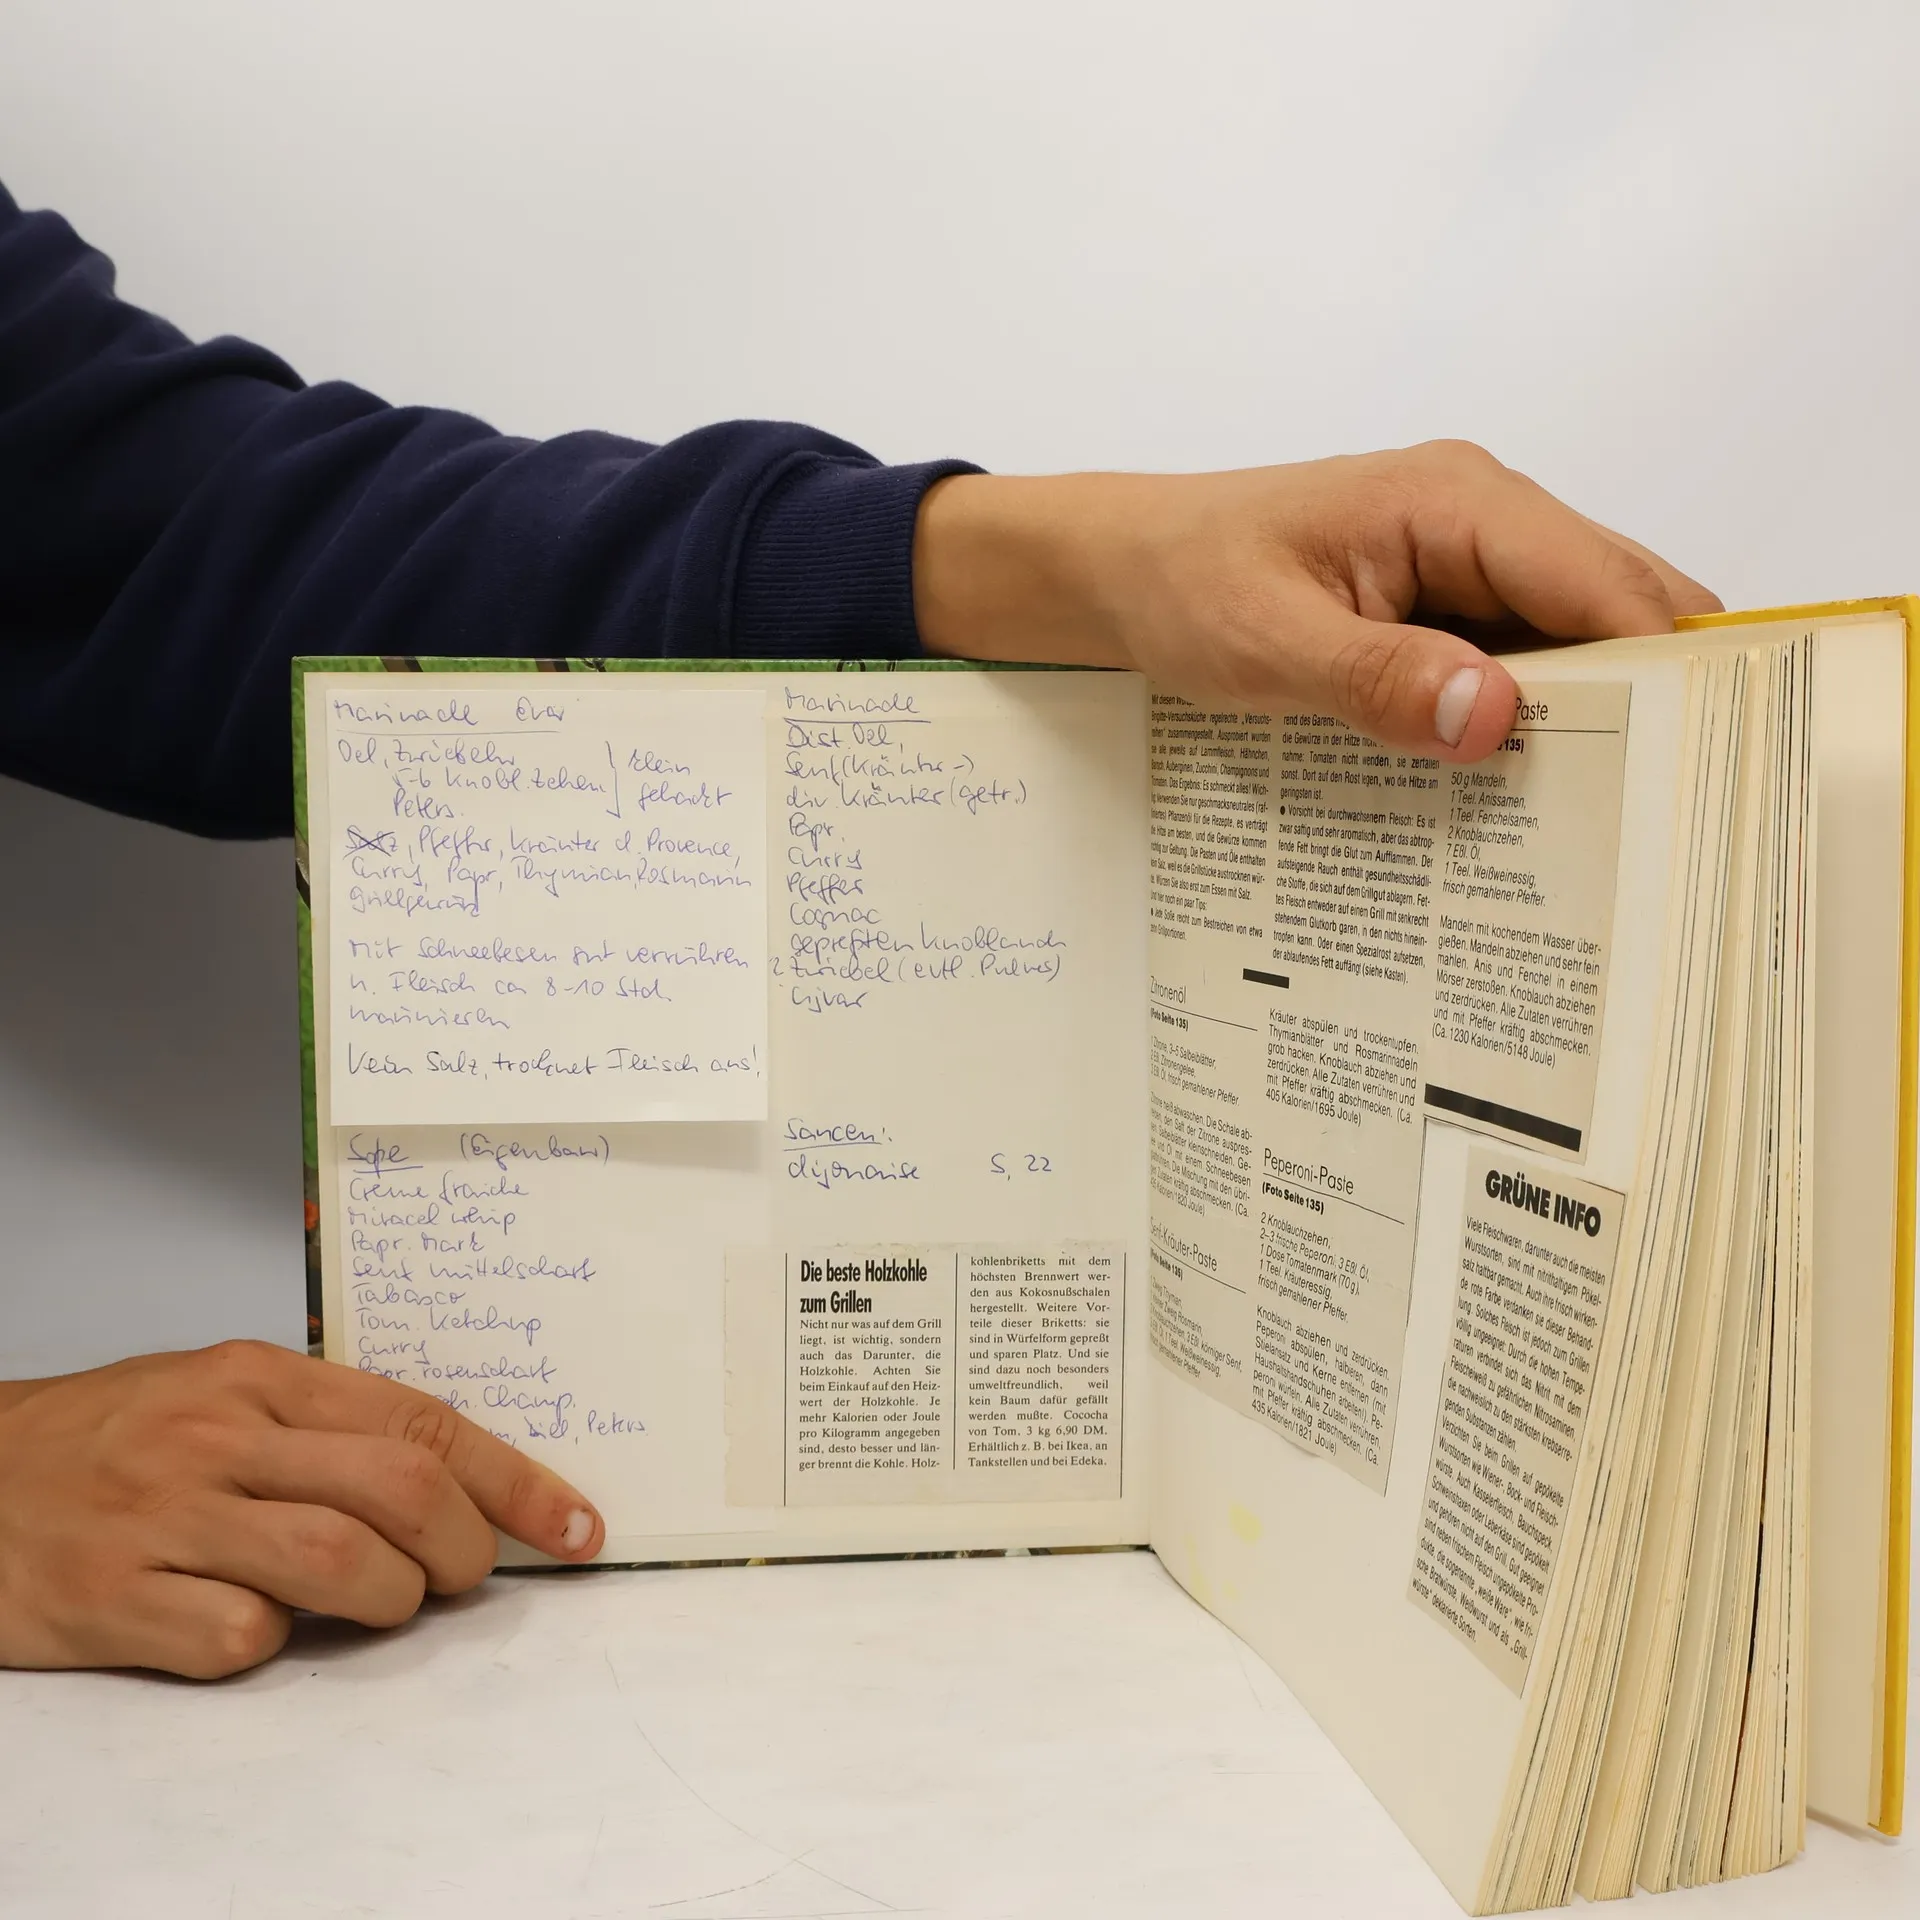 Marinade
Oel, Zwiebeln
5-6 Knobl.zehen
Peters.
klein
gehackt
Salz, Pfeffer, Kräuter d. Provence,
Curry, Papr, Thymian, Rosmarin
Grillgewürz
Mit Schneebesen gut verrühren
u. Fleisch ca 8-10 Std.
marinieren
Kein Salz, trocknet Fleisch aus!
Soße (Eigenbau)
Creme fraiche
Miracel whip
Papr. Mark
Senf mittelscharf
Tabasco
Tom. Ketchup
Curry
Papr. rosenscharf
Champ.
Dill, Peters
Marinade
Dist. Oel,
Senf (Kräuter-)
div. Kräuter (getr.)
Papr.
Curry
Pfeffer
Cognac
gepreßten Knoblauch
Zwiebel (evtl. Pulver)
Saucen:
dijonaise S. 22
Die beste Holzkohle
zum Grillen
Nicht nur was auf dem Grill
liegt, ist wichtig, sondern
auch das Darunter, die
Holzkohle. Achten Sie
beim Einkauf auf den Heiz-
wert der Holzkohle. Je
mehr Kalorien oder Joule
pro Kilogramm angegeben
sind, desto besser und län-
ger brennt die Kohle. Holz-
kohlenbriketts mit dem
höchsten Brennwert wer-
den aus Kokosnußschalen
hergestellt. Weitere Vor-
teile dieser Briketts: sie
sind in Würfelform gepreßt
und sparen Platz. Und sie
sind dazu noch besonders
umweltfreundlich, weil
kein Baum dafür gefällt
werden mußte. Cococha
von Tom. 3 kg 6,90 DM.
Erhältlich z. B. bei Ikea, an
Tankstellen und bei Edeka.
Mit diesen
Brigitte-Versuchsküche regelrechte „Versuchs-
reihen" zusammengestellt. Ausprobiert wurden
sie alle jeweils auf Lammfleisch, Hähnchen,
Auberginen, Zucchini, Champignons und
Tomaten. Das Ergebnis: Es schmeckt alles! Wich-
tig: Verwenden Sie nur geschmacksneutrales (raf-
finiertes) Pflanzenöl für die Rezepte, es verträgt
die Hitze am besten, und die Gewürze kommen
richtig zur Geltung. Die Pasten und Öle enthalten
kein Salz, weil es die Grillstücke austrocknen wür-
de. Würzen Sie also erst zum Essen mit Salz.
Und hier noch ein paar Tips:
● Jede Soße reicht zum Bestreichen von etwa
Grillportionen.
rend des Garens
die Gewürze in der Hitze nicht
nahme: Tomaten nicht wenden, sie zerfallen
sonst. Dort auf den Rost legen, wo die Hitze am
geringsten ist.
● Vorsicht bei durchwachsenem Fleisch: Es ist
zwar saftig und sehr aromatisch, aber das abtrop-
fende Fett bringt die Glut zum Aufflammen. Der
aufsteigende Rauch enthält gesundheitsschädli-
che Stoffe, die sich auf dem Grillgut ablagern. Fet-
tes Fleisch entweder auf einem Grill mit senkrecht
stehendem Glutkorb garen, in den nichts hinein-
tropfen kann. Oder einen Spezialrost aufsetzen,
der ablaufendes Fett auffängt (siehe Kasten).
Zitronenöl
(Foto Seite 135)
1 Zitrone, 3–5 Salbeiblätter,
2 Eßl. Zitronengelee,
Eßl. Öl, frisch gemahlener Pfeffer
Zitrone heiß abwaschen. Die Schale ab-
reiben, den Saft der Zitrone auspres-
sen. Salbeiblätter kleinschneiden. Ge-
lee und Öl mit einem Schneebesen
Die Mischung mit den übri-
gen Zutaten kräftig abschmecken. (Ca.
Kalorien/1820 Joule)
Senf-Kräuter-Paste
(Foto Seite 135)
Thymian,
Zweig Rosmarin
Knoblauchzehen, 3 Eßl. körniger Senf,
Öl, 1 Teel. Weißweinessig,
gemahlener Pfeffer
Kräuter abspülen und trockentupfen.
Thymianblätter und Rosmarinnadeln
grob hacken. Knoblauch abziehen und
zerdrücken. Alle Zutaten verrühren und
mit Pfeffer kräftig abschmecken. (Ca.
405 Kalorien/1695 Joule)
Peperoni-Paste
(Foto Seite 135)
2 Knoblauchzehen,
2–3 frische Peperoni, 3 Eßl. Öl,
1 Dose Tomatenmark (70 g),
1 Teel. Kräuteressig,
frisch gemahlener Pfeffer.
Knoblauch abziehen und zerdrücken.
Peperoni abspülen, halbieren, dann
Stielansatz und Kerne entfernen (mit
Haushaltshandschuhen arbeiten!). Pe-
peroni würfeln. Alle Zutaten verrühren,
mit Pfeffer kräftig abschmecken. (Ca.
435 Kalorien/1821 Joule)
Paste
135)
50 g Mandeln,
1 Teel. Anissamen,
1 Teel. Fenchelsamen,
2 Knoblauchzehen,
7 Eßl. Öl,
1 Teel. Weißweinessig,
frisch gemahlener Pfeffer.
Mandeln mit kochendem Wasser über-
gießen. Mandeln abziehen und sehr fein
mahlen. Anis und Fenchel in einem
Mörser zerstoßen. Knoblauch abziehen
und zerdrücken. Alle Zutaten verrühren
und mit Pfeffer kräftig abschmecken.
(Ca. 1230 Kalorien/5148 Joule)
GRÜNE INFO
Viele Fleischwaren, darunter auch die meisten
Wurstsorten, sind mit nitrithaltigem Pökel-
salz haltbar gemacht. Auch ihre frisch wirken-
de rote Farbe verdanken sie dieser Behand-
lung. Solches Fleisch ist jedoch zum Grillen
völlig ungeeignet: Durch die hohen Tempe-
raturen verbindet sich das Nitrit mit dem
Fleischeiweiß zu gefährlichen Nitrosaminen,
die nachweislich zu den stärksten krebserre-
genden Substanzen zählen.
Verzichten Sie beim Grillen auf gepökelte
Wurstsorten wie Wiener-, Bock- und Fleisch-
würste. Auch Kasselerfleisch, Bauchspeck,
Schweinshaxen oder Leberkäse sind gepökelt
und gehören nicht auf den Grill. Gut geeignet
sind neben frischem Fleisch ungepökelte Pro-
dukte, die sogenannte „weiße Ware", wie fri-
sche Bratwürste, Weißwurst und als „Grill-
würste" deklarierte Sorten.